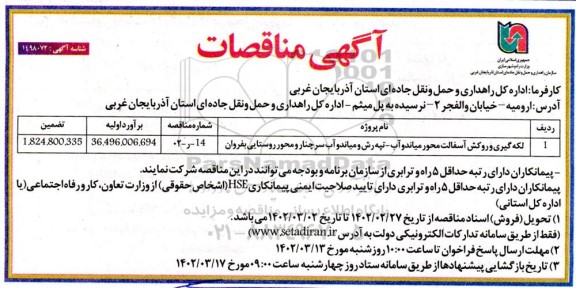 آگهی مناقصات
شناسه آگهی : ۱۴۹۸۰۷۲
جمهوری اسلامی ایران
وزارت راه و شهرسازی
سازمان راهداری و حمل و نقل جاده ای استان آذربایجان غربی
کارفرما: اداره کل راهداری و حمل ونقل جاده ای استان آذربایجان غربی
آدرس: ارومیه - خیابان والفجر ۲- نرسیده به پل میثم - اداره کل راهداری و حمل ونقل جاده ای استان آذربایجان غربی
ردیف نام پروژه شماره مناقصه برآورد اولیه تضمین
1 لکه گیری و روکش آسفالت محور میاندوآب - تپه رش و میاندوآب سرچنار و محور روستایی بفروان 14-ر-02 36,496,006,694 1,824,800,335
- پیمانکاران دارای رتبه حداقل ۵ راه و ترابری از سازمان برنامه و بودجه می توانند در این مناقصه شرکت نمایند.
پیمانکاران دارای رتبه حداقل ۵ راه و ترابری دارای تایید صلاحیت ایمنی پیمانکاری HSE (اشخاص حقوقی) از وزارت تعاون، کار و رفاه اجتماعی (یا
اداره کل استانی)
۱) تحویل (فروش) اسناد مناقصه از تاریخ ۱۴۰۲/۰۲/۲۷ تا تاریخ ۱۴۰۲/۰۳/۰۲ می باشد.
(فقط از طریق سامانه تدارکات الکترونیکی دولت به آدرس www.setadiran.ir)
۲) مهلت ارسال پاسخ فراخوان تا ساعت ۱۰:۰۰ روز شنبه مورخ ۱۴۰۲/۰۳/۱۳
۳) تاریخ بازگشایی پیشنهادها از طریق سامانه ستاد روز چهارشنبه ساعت ۰۹:۰۰ مورخ ۱۴۰۲/۰۳/۱۷